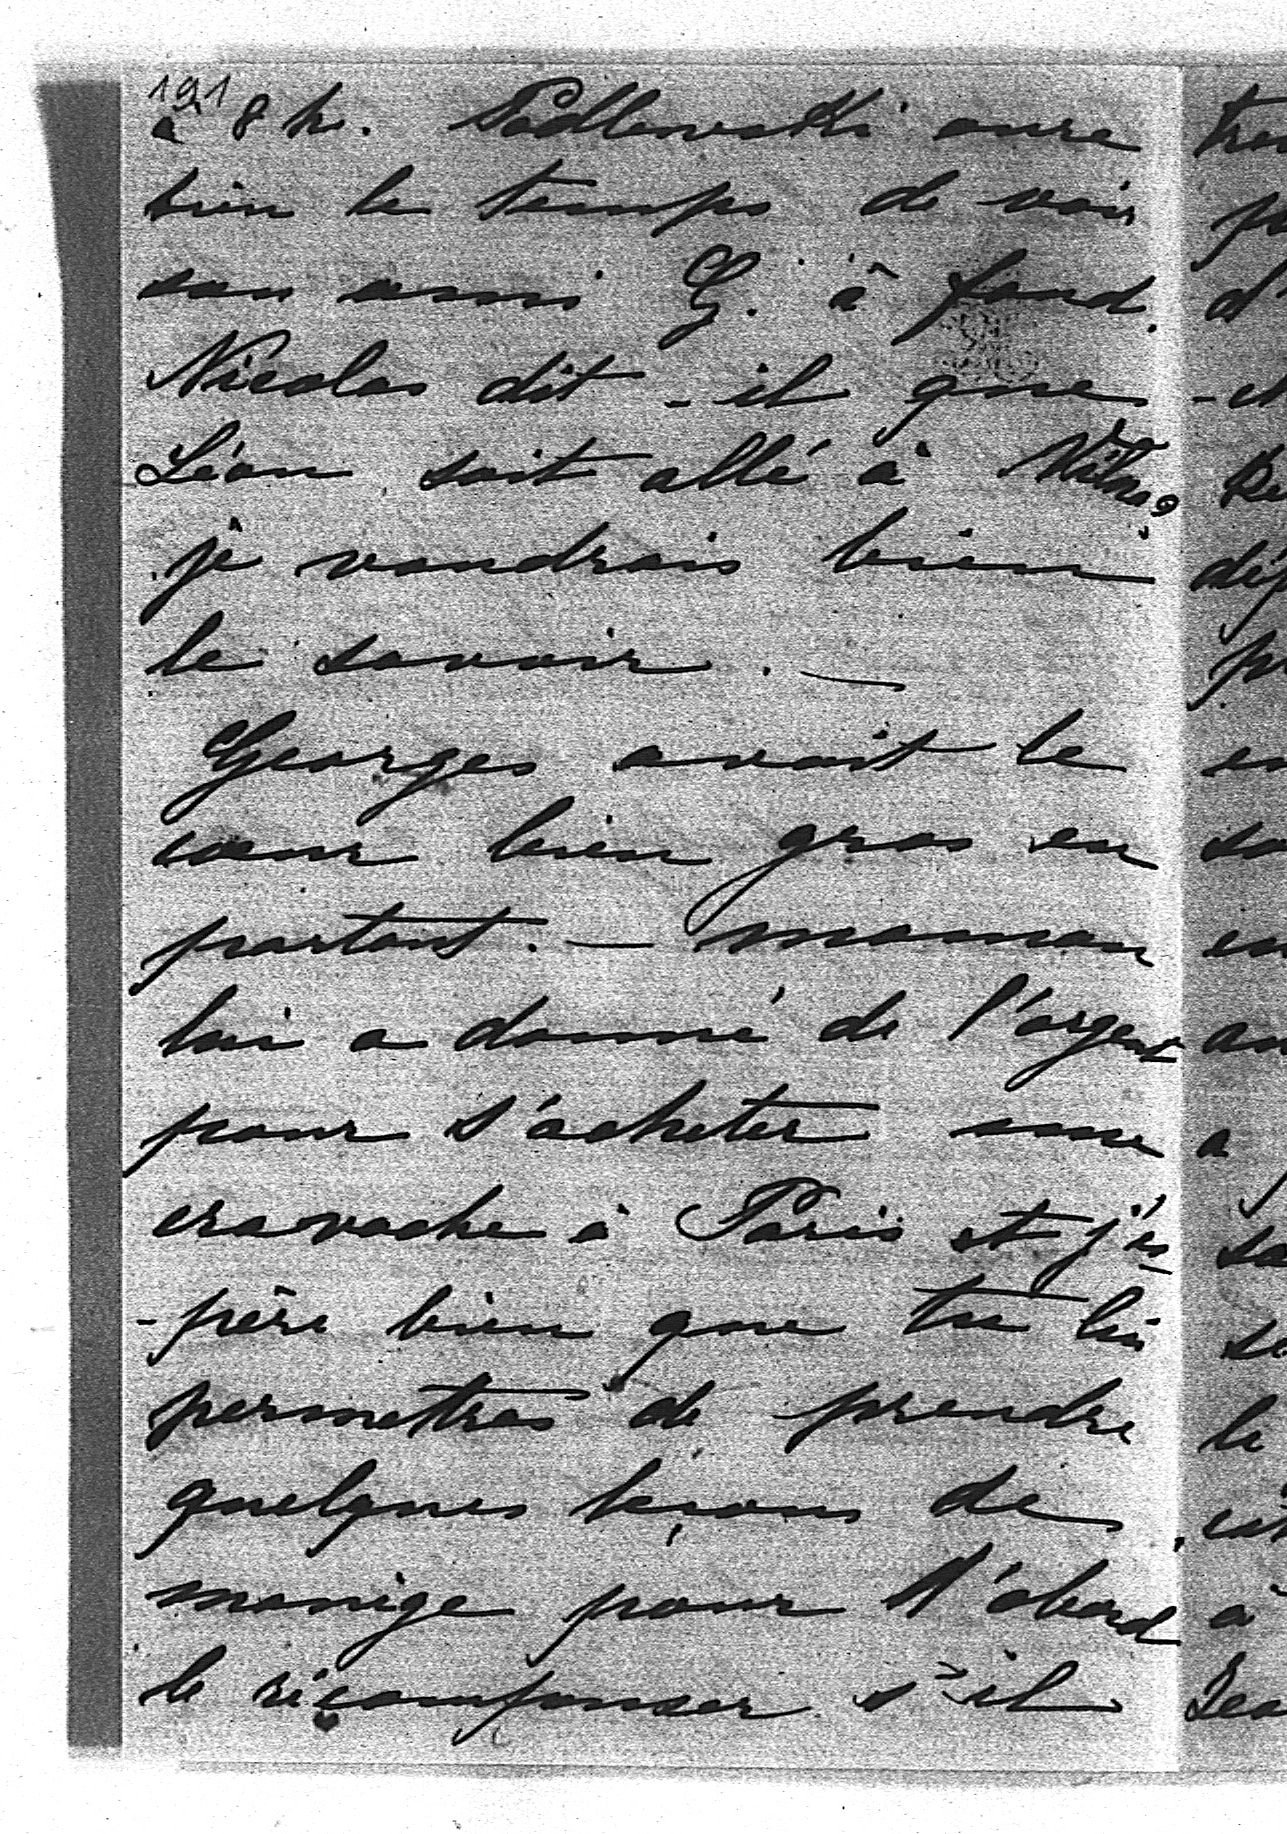 191
à 8 h. Padlewski aura
bien le temps de voir
son ami G. à fond.
Nicolas dit-il que
Léon soit allé à
je voudrais bien
le savoir. —
Georges avait le
cœur bien gros en
partant. — maman
lui a donné de l'argent
pour s'acheter une
cravache à Paris et j'es
-père bien que tu lui
permettras de prendre
quelques leçons de
manège pour d'abord
le récompenser s'il